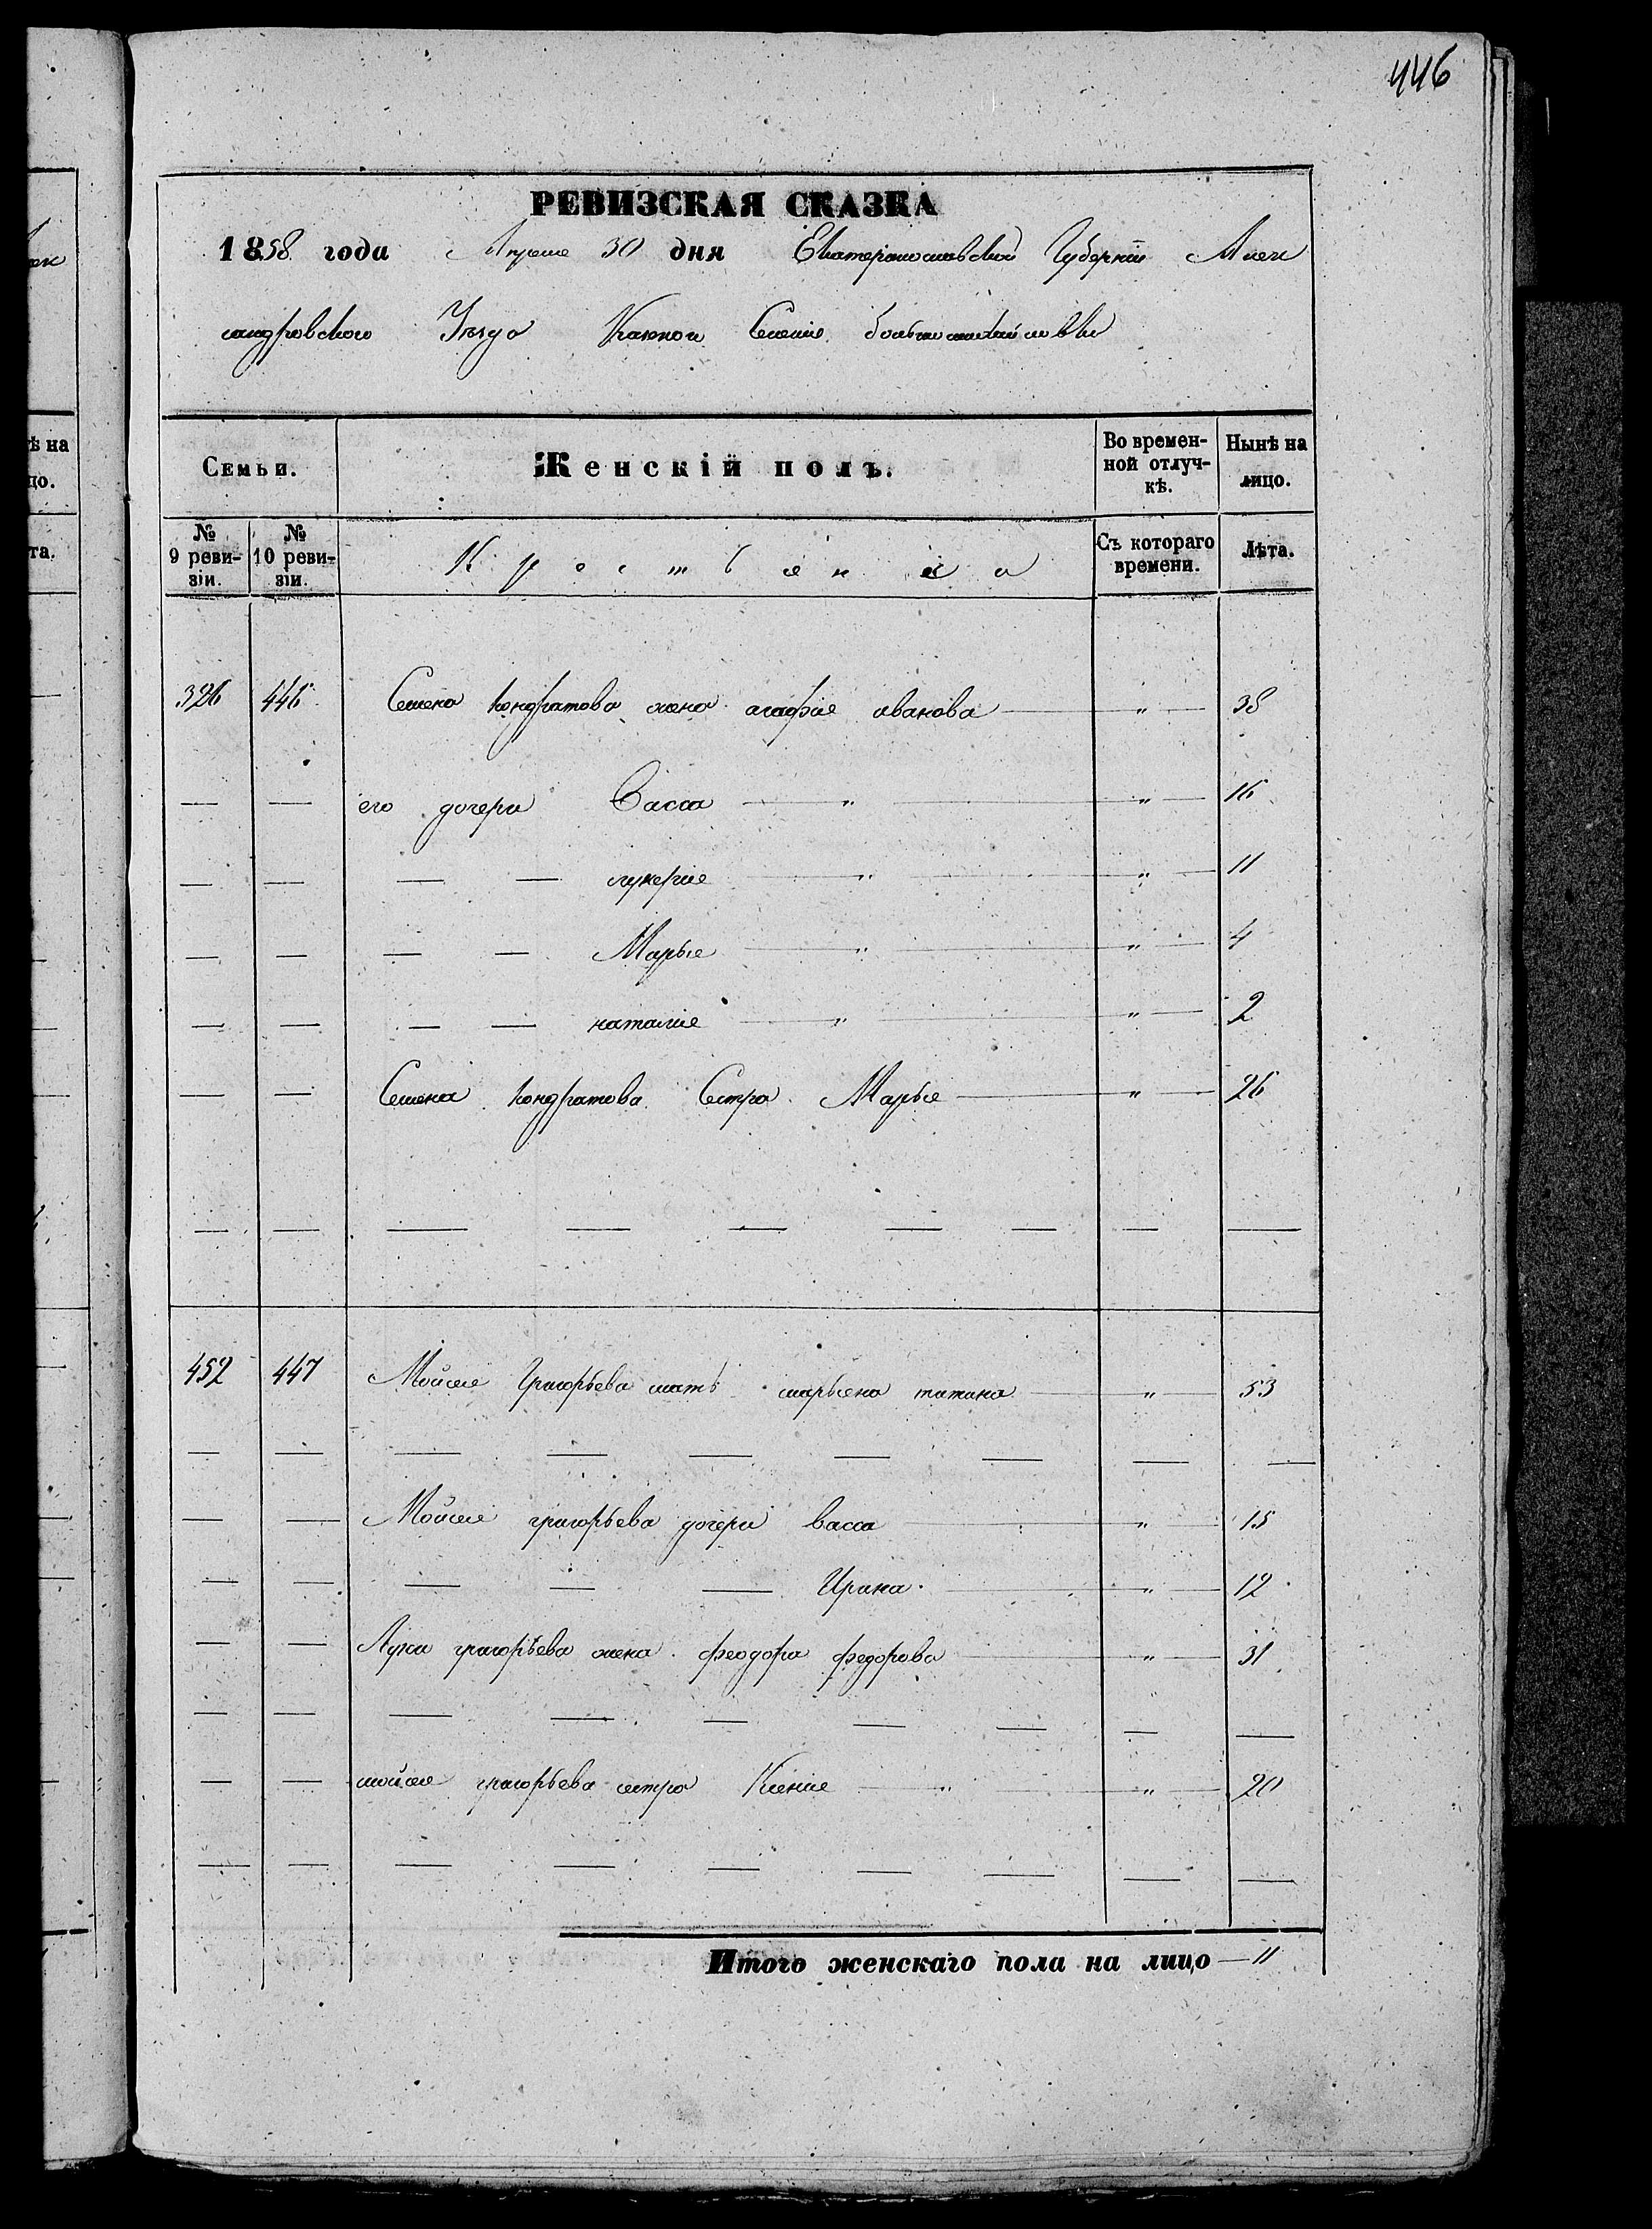 446
РЕВИЗСКАЯ СКАЗКА
1858 года Апреля 30 дня Екатеринославской Губерніи Алек
сандровского Уезда Казенои Селение больше михайловки
Семьи.
Женскій полъ.
Во времен-
ной отлуч-
кѣ.
Нынѣ на
лицо.
№
9 реви-
зіи.
№
10 реви-
зіи.
Съ котораго
времени.
Лѣта.
326 446 Семена кондратова жена агафие иванова " 38
его дочери Васса " " 16
— — — — лукерие " " 11
— — — — Марье " " 4
— — — — наталие " " 2
— — Семена кондратова Сестра Марье " 26
452 447 Мойсее Григорьева мать марьена титина " 53
— — Мойсее григорьева дочери васса " 15
— — — — — Ирина " 12
— — Луки григорьева жена феодора федорова " 31
— — мойсее григорьева сестра Ксение " " 20
Итого женскаго пола на лицо — 11
ѣ на
цо.
та.